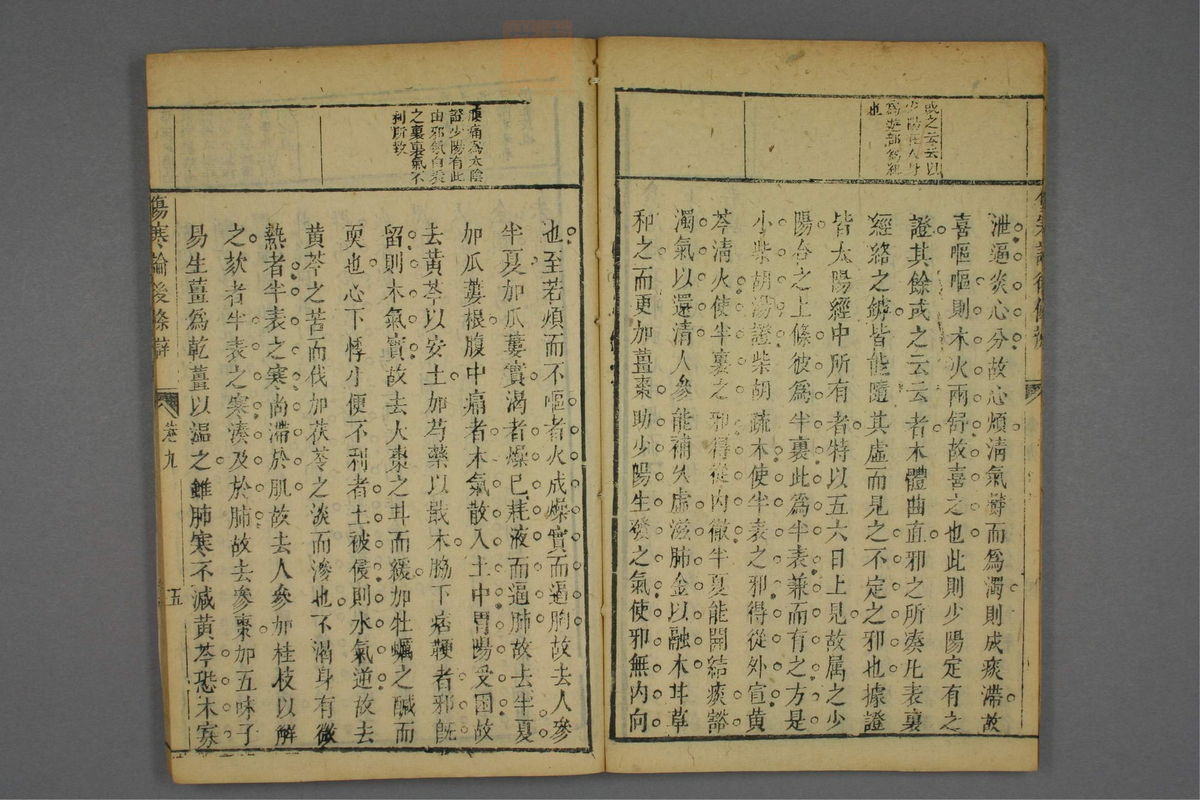 或之云云以
少陽在人身
為遊部為經
也
泄逼炎心分故心煩清氣鬱而為濁則成痰滯故
喜嘔嘔則木火兩舒故喜之也此則少陽定有之
證其餘或之云云者木體曲直邪之所湊凡表裏
經絡之罅皆能隨其虛而見之不定之邪也據證
皆太陽經中所有者特以五六日上見故屬之少
陽合之上條彼為半裏此為半表兼而有之方是
小柴胡湯證柴胡疏木使半表之邪得從外宣黃
芩清火使半裏之邪得從內徹半夏能開結痰豁
濁氣以還清人參能補久虛滋肺金以融木甘草
和之而更加薑棗助少陽生發之氣使邪無內向
腹痛為太陰
證少陽有此
由邪氣自表
之裏裏氣不
利所致
也至若煩而不嘔者火成燥實而逼胸故去人參
半夏加瓜蔞實渴者燥已耗液而逼肺故去半夏
加瓜蔞根腹中痛者木氣散入土中胃陽受困故
去黃芩以安土加芍藥以戢木脇下痞鞕者邪既
留則木氣實故去大棗之甘而緩加牡蠣之鹹而
耎也心下悸小便不利者土被侵則水氣逆故去
黃芩之苦而伐加茯苓之淡而滲也不渴身有微
熱者半表之寒尚滯於肌故去人參加桂枝以解
之欬者半表之寒湊及於肺故去參棗加五味子
易生薑為乾薑以溫之雖肺寒不減黃芩恐木寡
傷寒論後條辯
卷九
五